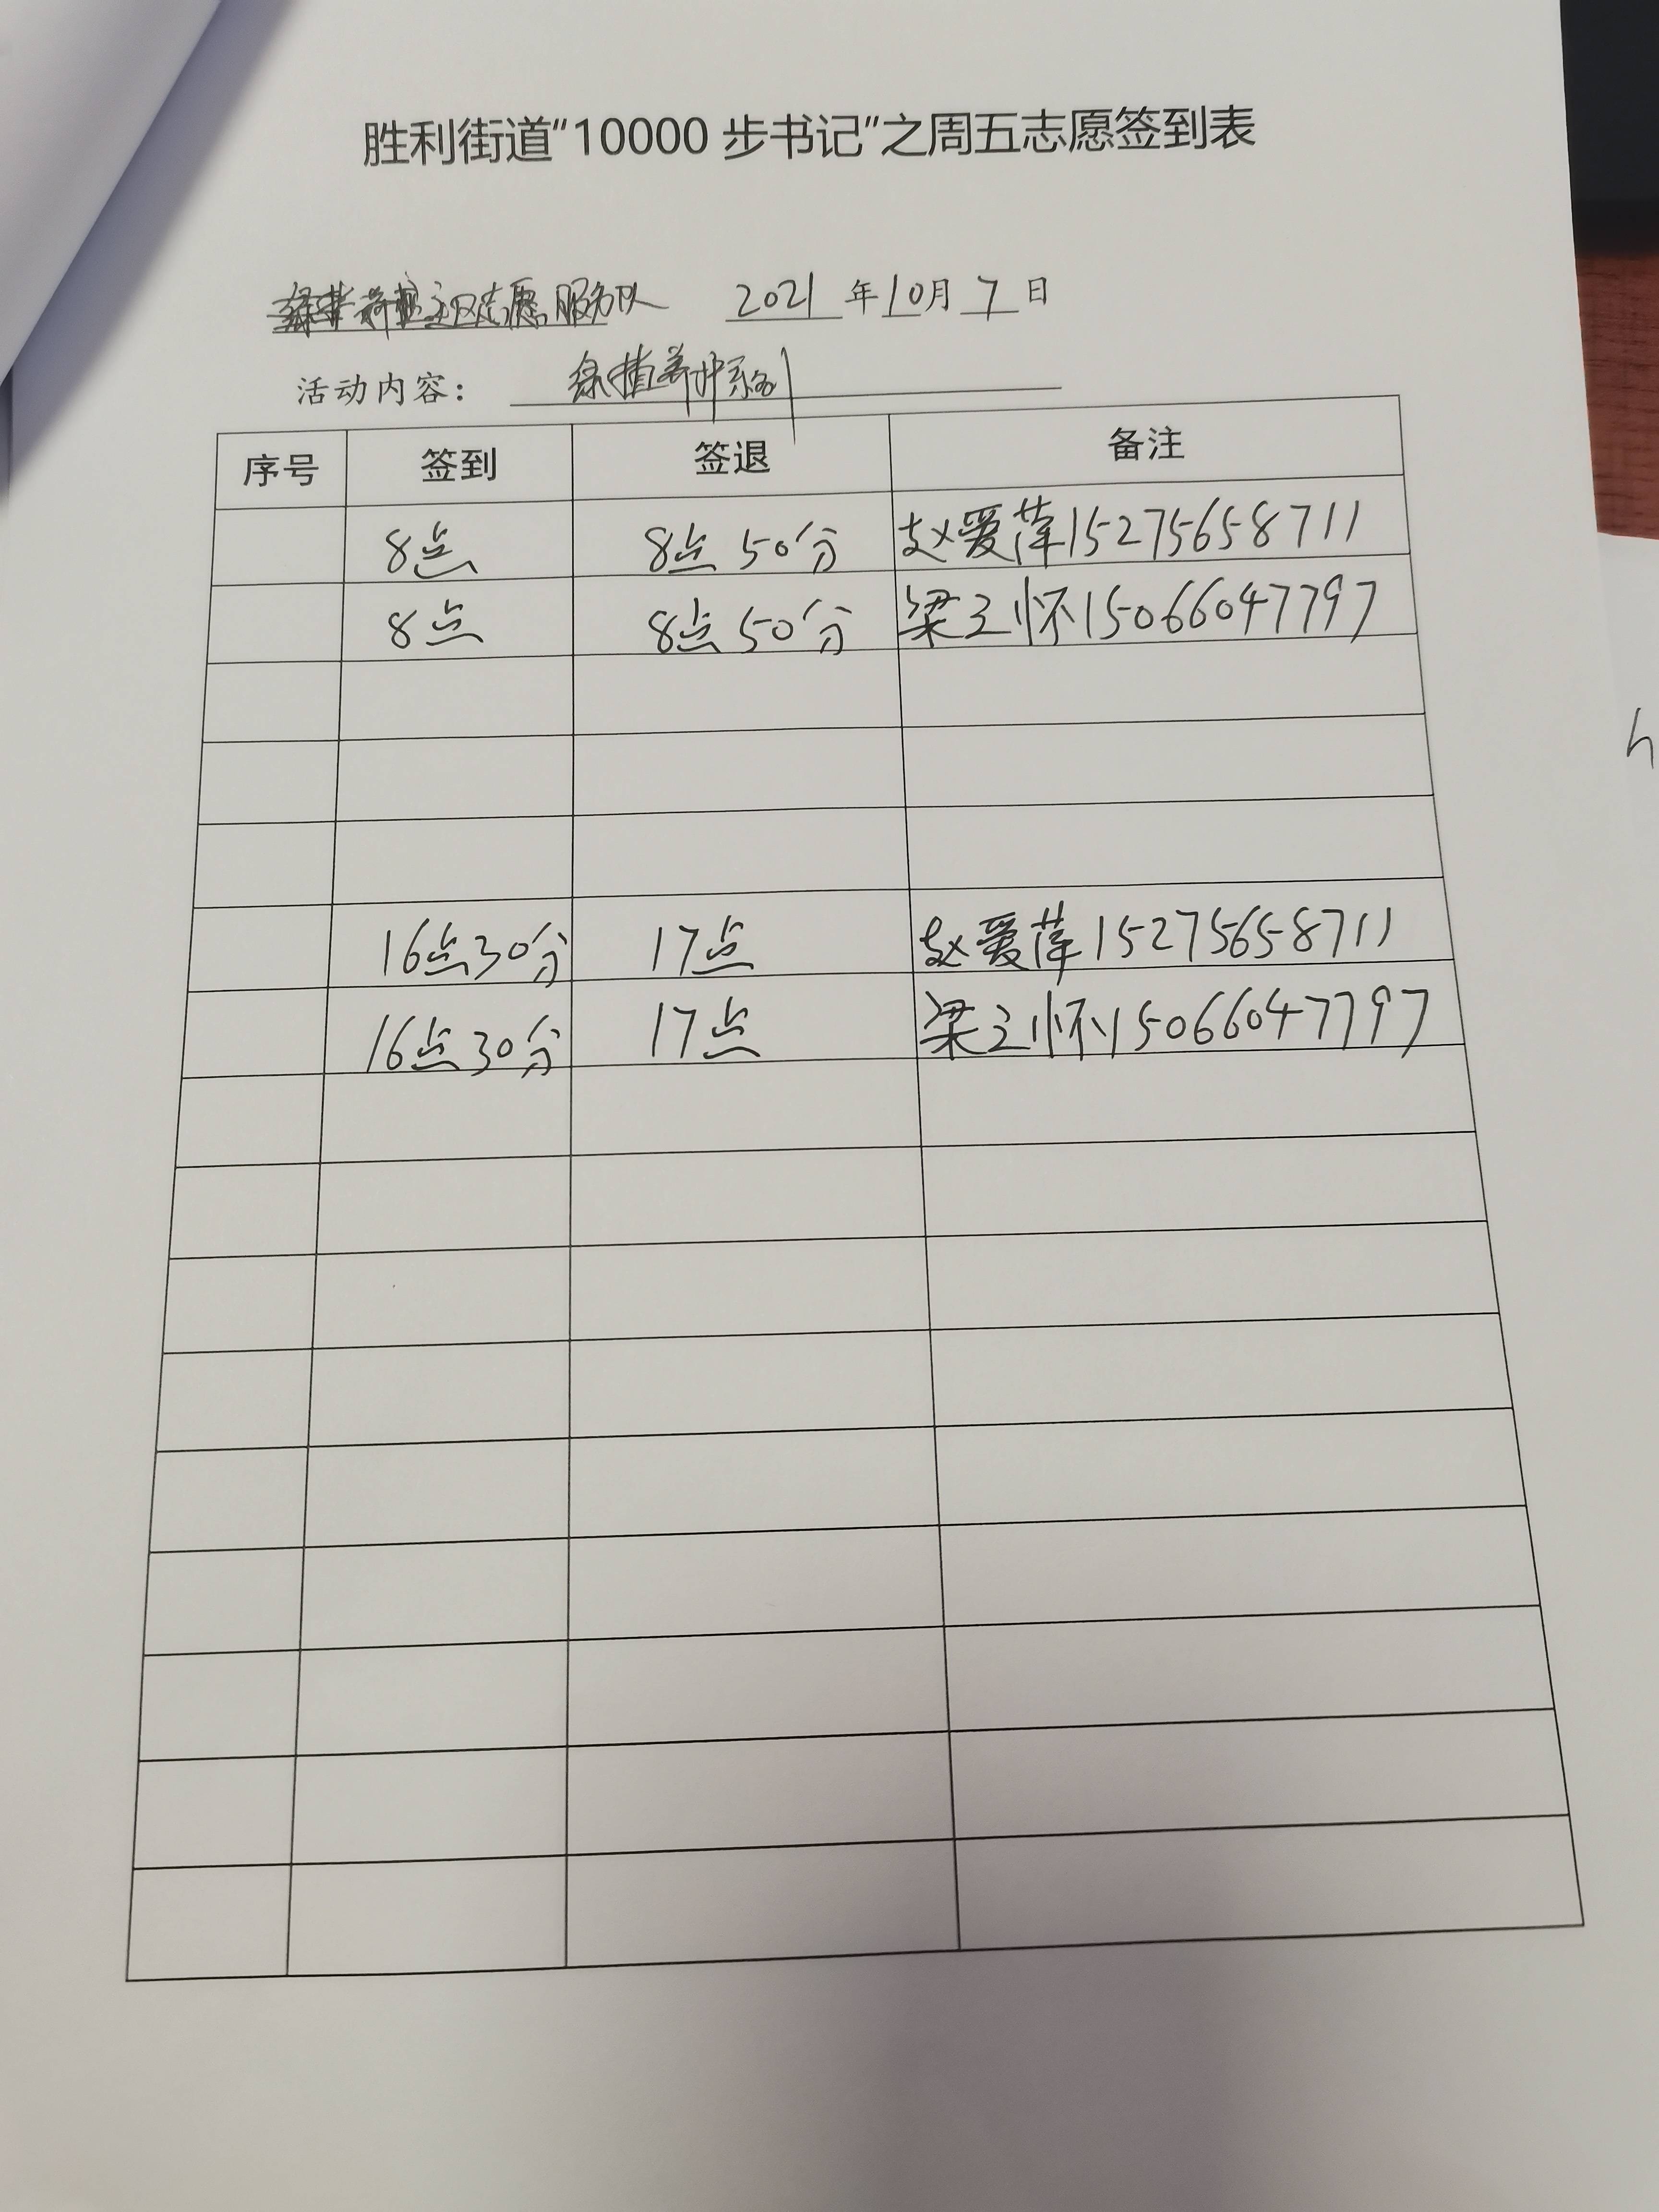 胜利街道“10000 步书记”之周五志愿签到表
志愿服务队 2021 年 10 月 7 日
活动内容: 绿植养护系列
序号 签到 签退 备注
8点 8点50分 赵爱萍15275658711
8点 8点50分 梁立怀15066047797
16点30分 17点 赵爱萍15275658711
16点30分 17点 梁立怀15066047797